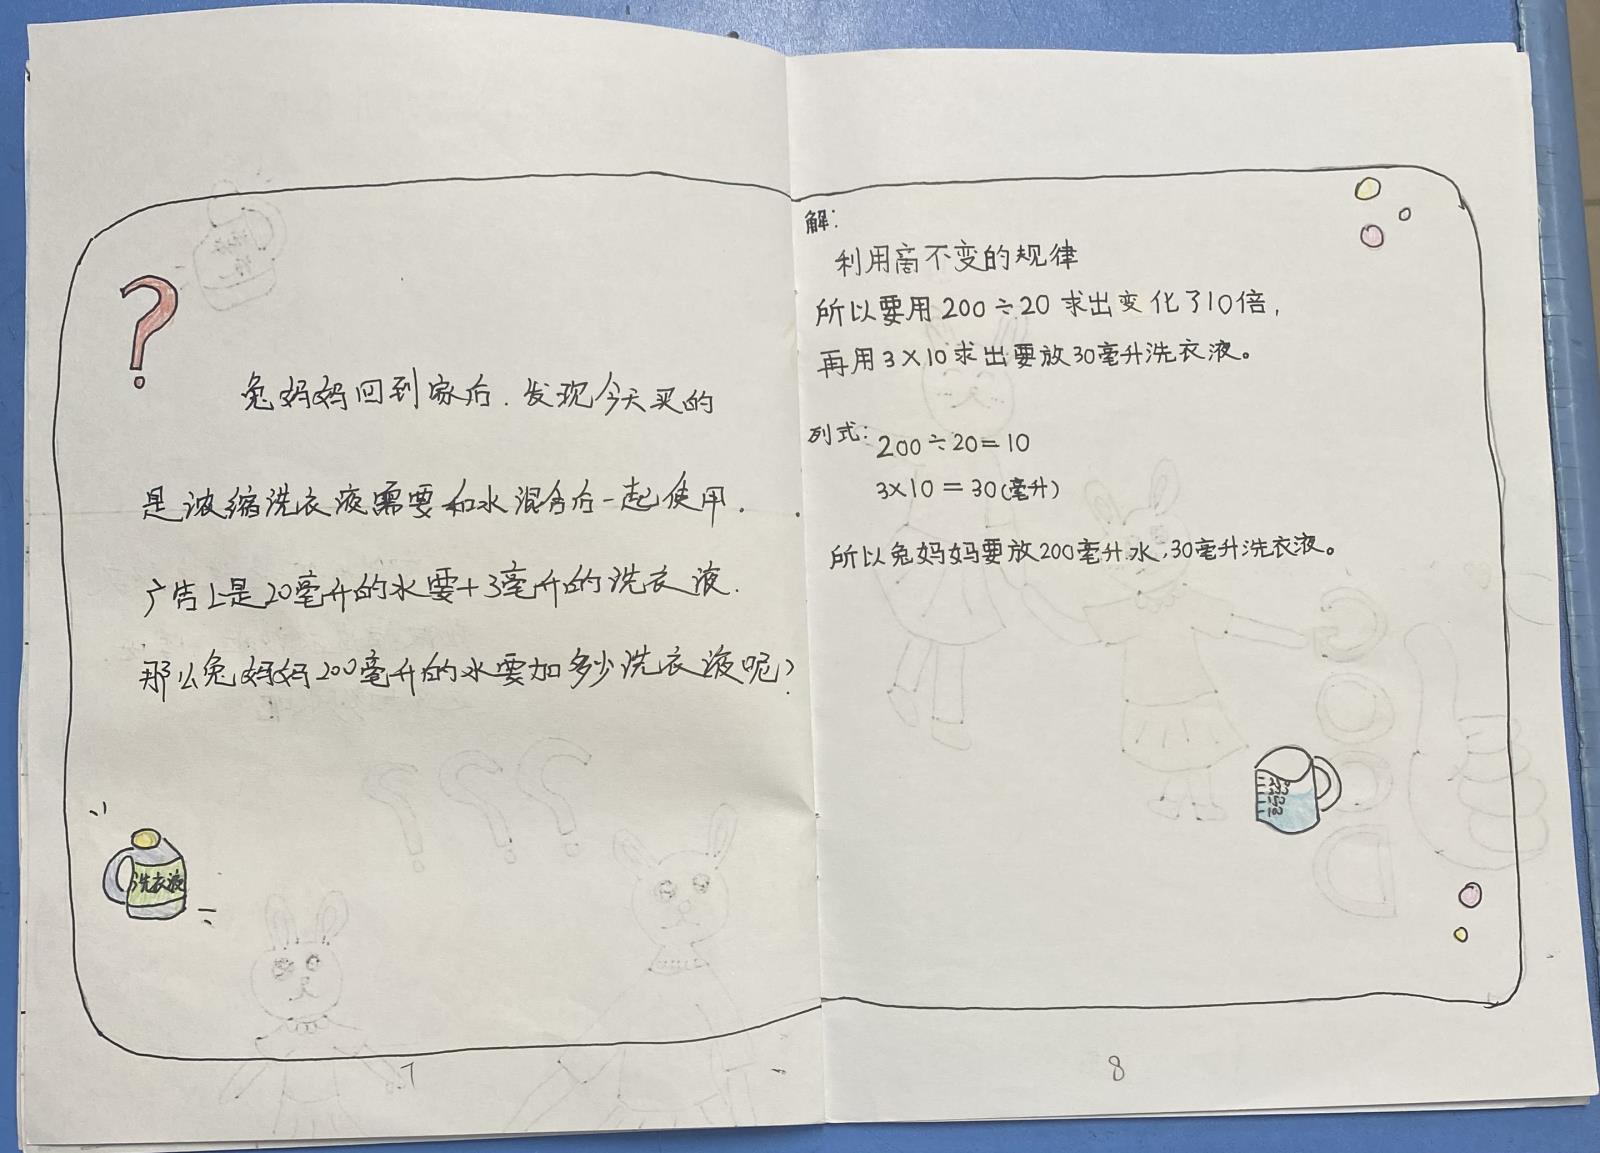 兔妈妈回到家后.发现今天买的
是浓缩洗衣液需要和水混合后一起使用.
广告上是20毫升的水要+3毫升的洗衣液.
那么兔妈妈200毫升的水要加多少洗衣液呢？
洗衣液
7
解：
利用商不变的规律
所以要用200÷20求出变化了10倍，
再用3×10求出要放30毫升洗衣液。
列式：200÷20=10
3×10=30(毫升)
所以兔妈妈要放200毫升水，30毫升洗衣液。
8